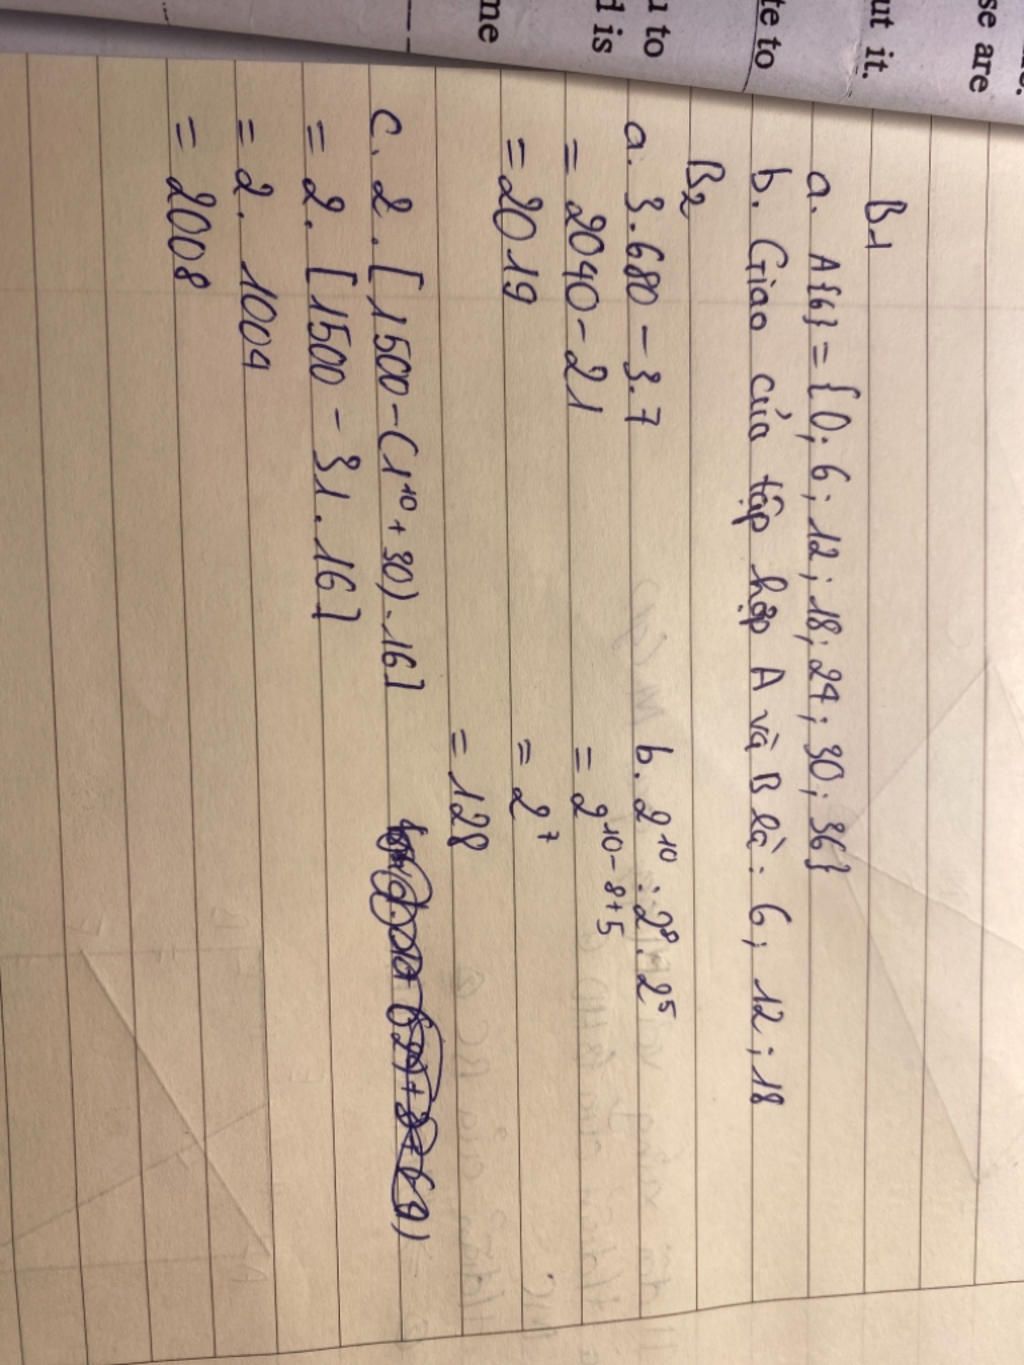 se are
ut it.
te to
u to
d is
me
B1
a. A{6} = {0; 6; 12; 18; 24; 30; 36}
b. Giao của tập hợp A và B là: 6; 12; 18
B2
a. 3.680 - 3.7
= 2040 - 21
= 2019
b. 2¹⁰ : 2⁸ . 2⁵
= 2¹⁰⁻⁸⁺⁵
= 2⁷
= 128
c. 2. [1500 - (1¹⁰ + 30) . 16]
= 2. [1500 - 31 . 16]
= 2. 1004
= 2008